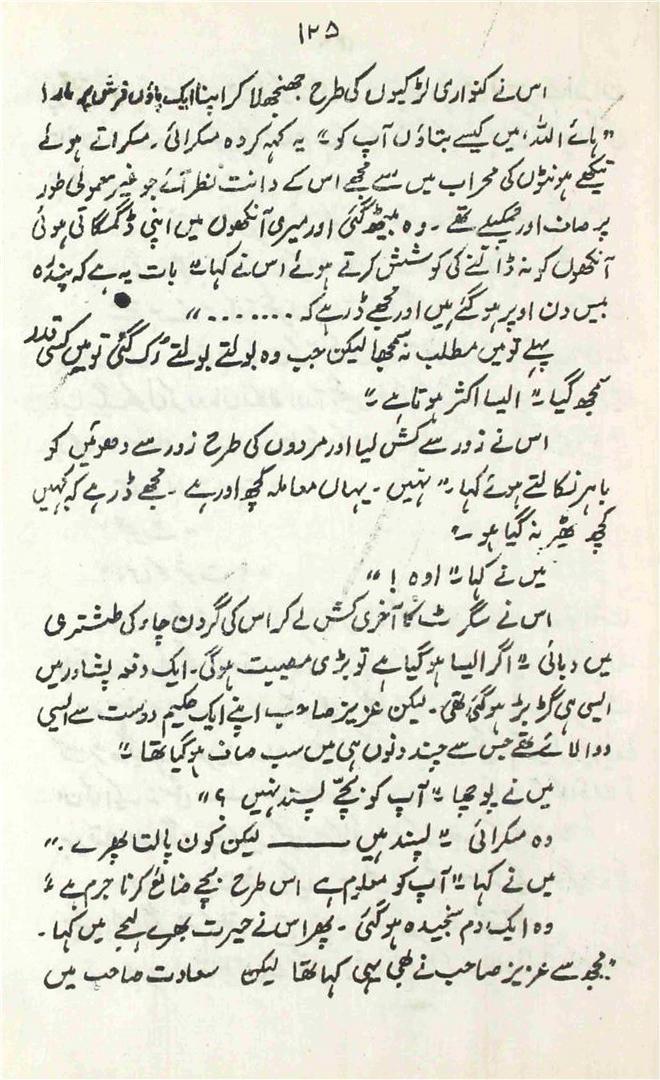 ۱۲۵
اس نے کنواری لڑکیوں کی طرح جھنجھلا کر اپنا ایک پاؤں فرش پر مارا
"ہائے اللہ، میں کیسے بتاؤں آپ کو" یہ کہہ کر وہ مسکرائی۔ مسکراتے ہوئے
تیکھے ہونٹوں کی محراب میں سے مجھے اس کے دانت نظر آئے جو غیر معمولی طور
پر صاف اور چمکیلے تھے۔ وہ بیٹھ گئی اور میری آنکھوں میں اپنی ڈگمگاتی ہوئی
آنکھوں کو نہ ڈالنے کی کوشش کرتے ہوئے اس نے کہا۔" بات یہ ہے کہ پندرہ
بیس دن اوپر ہو گئے ہیں اور مجھے ڈر ہے کہ ......."
پہلے تو میں مطلب نہ سمجھا لیکن جب وہ بولتے بولتے رُک گئی تو میں کسی قدر
سمجھ گیا۔" ایسا اکثر ہوتا ہے۔"
اس نے زور سے کش لیا اور مردوں کی طرح زور سے دھوئیں کو
باہر نکالتے ہوئے کہا۔" نہیں۔ یہاں معاملہ کچھ اور ہے۔ مجھے ڈر ہے کہ کہیں
کچھ ٹھیر نہ گیا ہو۔"
میں نے کہا۔" اوہ !"
اس نے سگرٹ کا آخری کش لے کر اس کی گردن چاء کی طشتری
میں دبائی۔" اگر ایسا ہو گیا ہے تو بڑی مصیبت ہوگی۔ ایک دفعہ پشاور میں
ایسی ہی گڑبڑ ہو گئی تھی۔ لیکن عزیز صاحب اپنے ایک حکیم دوست سے ایسی
دوا لائے تھے جس سے چند دنوں ہی میں سب صاف ہو گیا تھا۔"
میں نے پوچھا۔" آپ کو بچے پسند نہیں ؟"
وہ مسکرائی۔" پسند ہیں ــــــــ لیکن کون پالتا پھرے۔"
میں نے کہا۔" آپ کو معلوم ہے اس طرح بچے ضائع کرنا جرم ہے"
وہ ایک دم سنجیدہ ہو گئی۔ پھر اس نے حیرت بھرے لہجے میں کہا۔
"مجھ سے عزیز صاحب نے بھی یہی کہا تھا لیکن سعادت صاحب میں